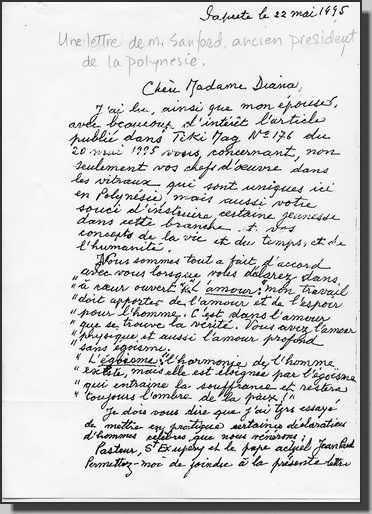 Papeete le 22 mai 1995
Une lettre de m. Sanford, ancien président
de la polynésie.
Chère Madame Diana,
J'ai lu, ainsi que mon épouse,
avec beaucoup d'intérêt l'article
publié dans Tiki Mag No 176 du
20 mai 1995 vous, concernant, non
seulement vos chefs d'œuvre dans
les vitraux qui sont uniques ici
en Polynésie, mais aussi votre
souci d'instruire certaine jeunesse
dans cette branche. et vos
concepts de la vie et du temps, et de
l'humanité.
Nous sommes tout a fait d'accord
avec vous lorsque vous déclarez dans,
" à cœur ouvert l'amour: "mon travail
" doit apporter de l'amour et de l'espoir
" pour l'homme. C'est dans l'amour
" que se trouve la vérité. Vous avez l'amour
" physique et aussi l'amour profond
" sans égoïsme.
" L'égoïsme: "l'harmonie de l'homme
" existe, mais elle est éloignée par l'égoïsme
" qui entraine la souffrance et restera
" toujours l'ombre de la paix!"
Je dois vous dire que j'ai tjrs essayé
de mettre en pratique certaines déclarations
d'hommes célèbres que nous vénérons:
Pasteur, St Exupéry et le pape actuel Jean Paul
Permettez-moi de joindre à la présente lettre